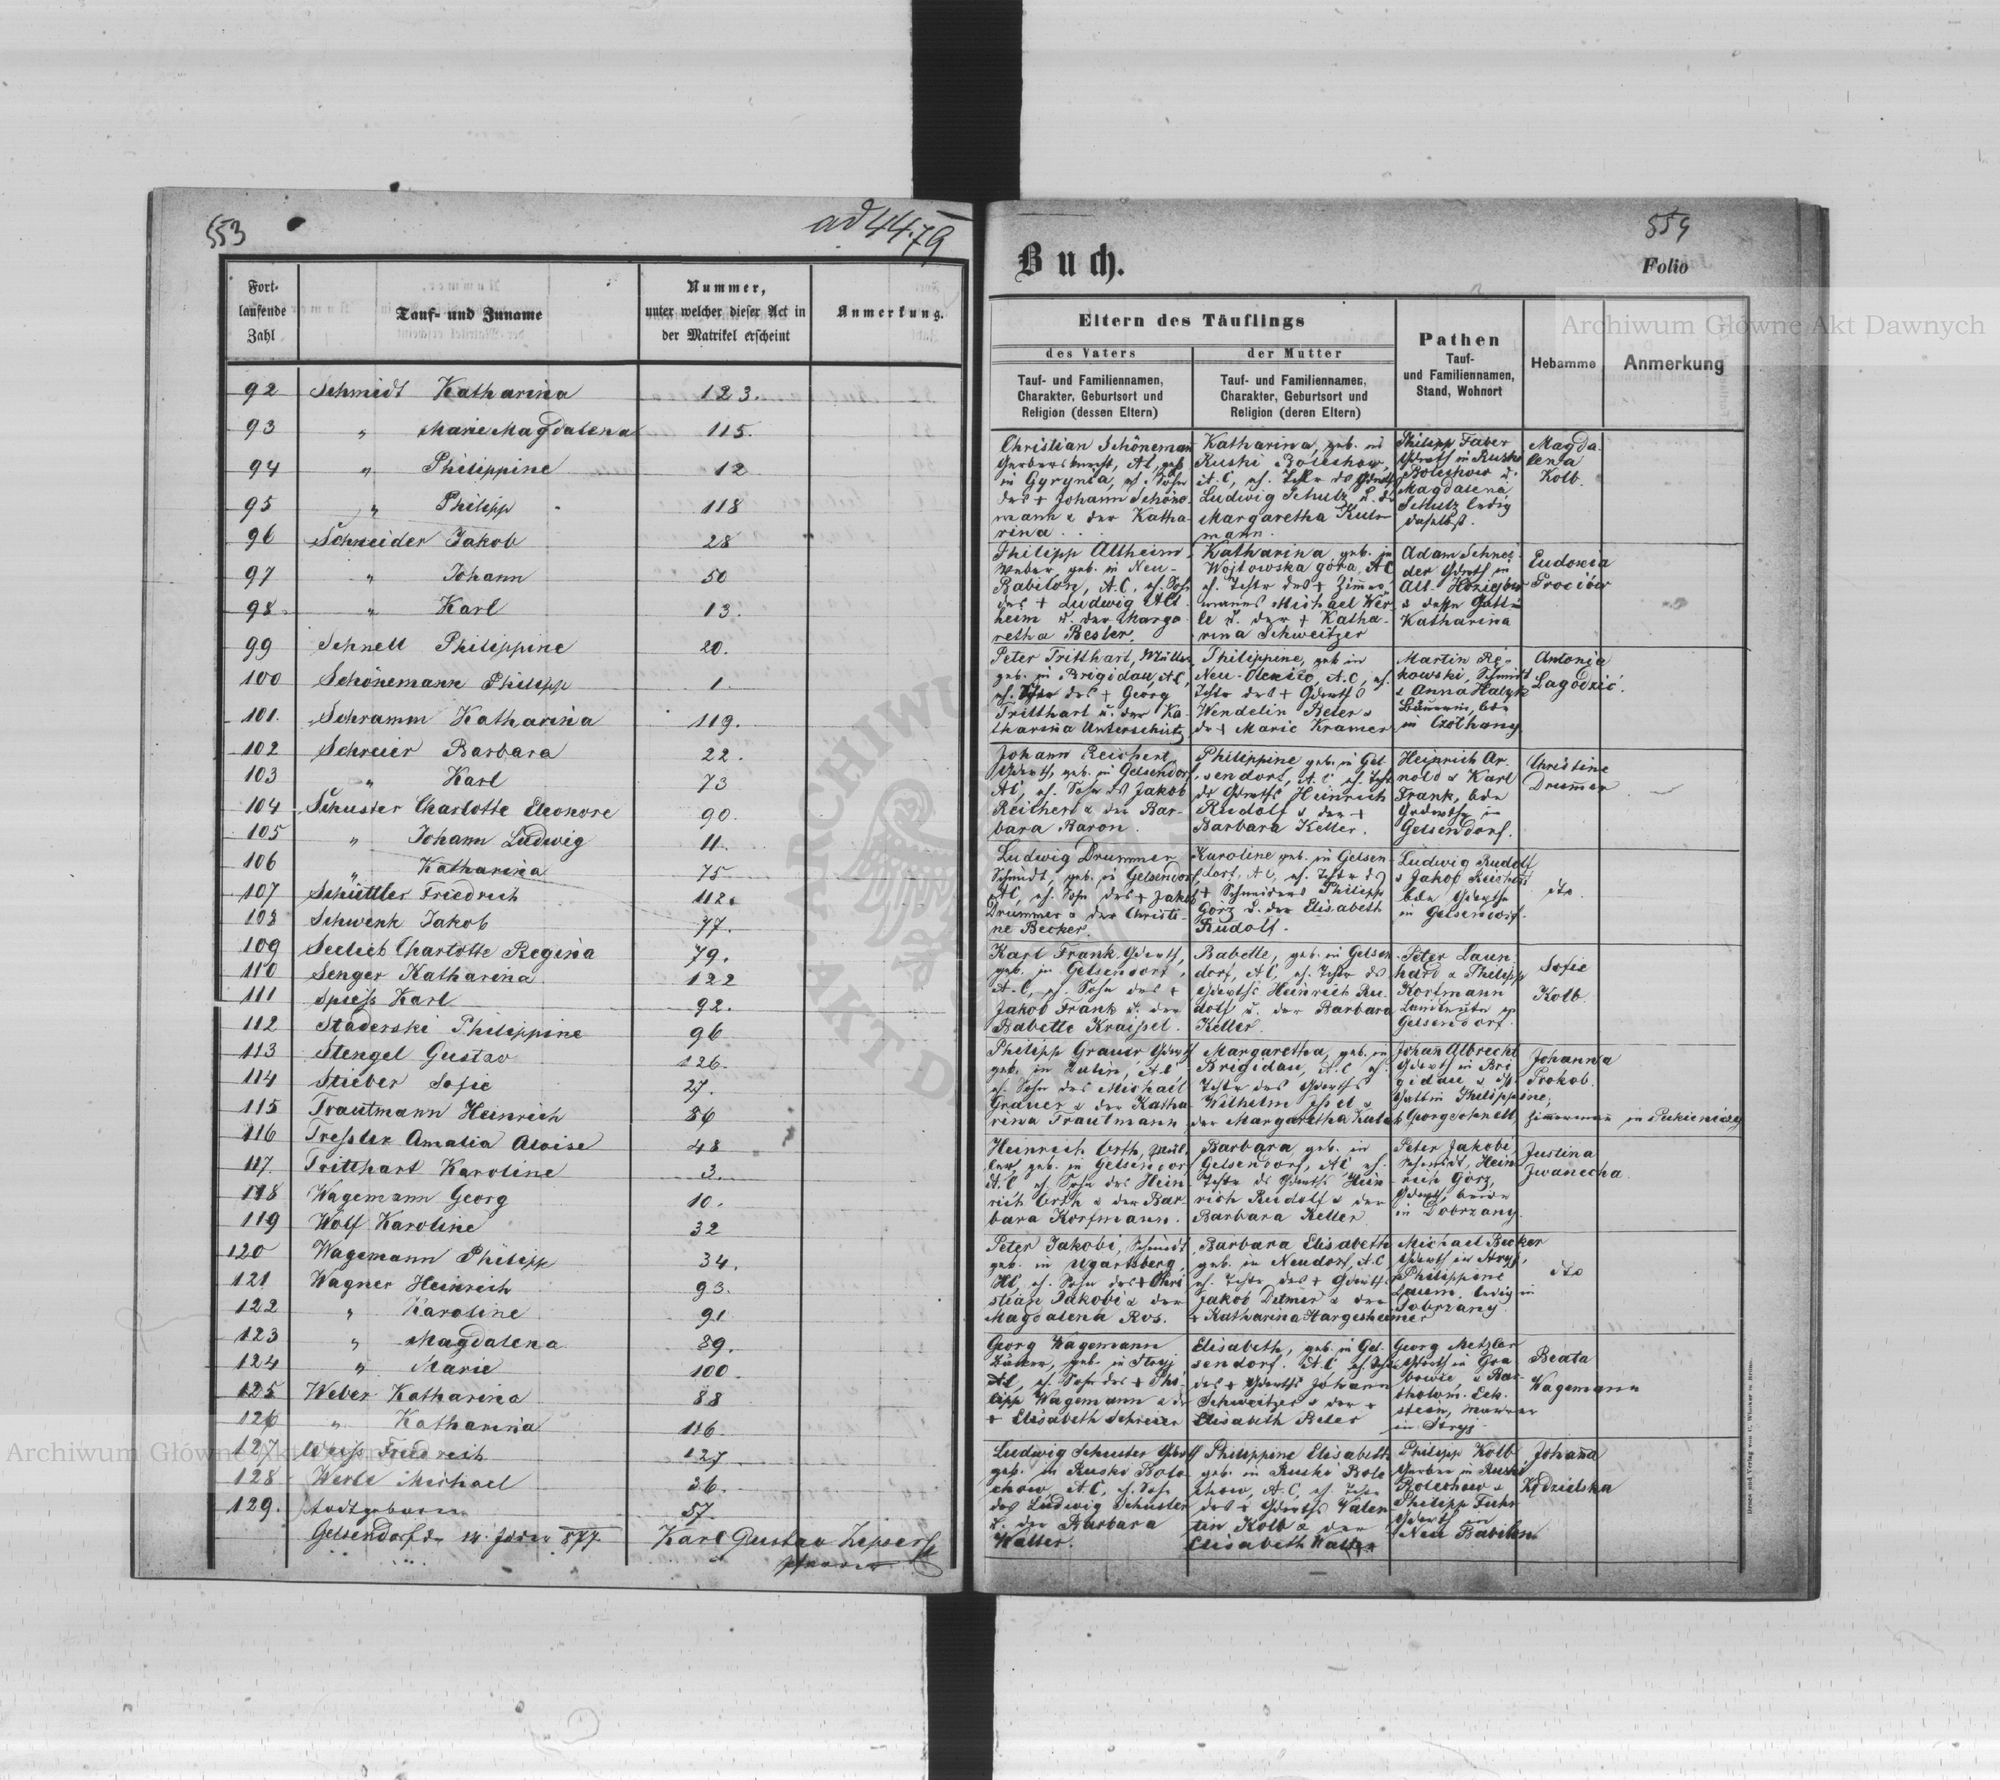 553
ad 44.79
Fort-
laufende
Zahl
Tauf- und Zuname
Nummer,
unter welcher dieser Act in
der Matrikel erscheint
Anmerkung.
92 Schmidt Katharina 123.
93 " Marie Magdalena 115.
94 " Philippine 12
95 " Philipp 118
96 Schneider Jakob 28
97 " Johann 50
98. " Karl 13.
99 Schnell Philippine 20.
100 Schönemann Philipp 1.
101. Schramm Katharina 119.
102 Schreier Barbara 22.
103 " Karl 73
104 Schuster Charlotte Eleonore 90.
105 " Johann Ludwig 11.
106 " Katharina 75
107 Schüttler Friedrich 112.
108 Schwenk Jakob 77.
109 Seelieb Charlotte Regina 79.
110 Senger Katharina 122
111 Spiess Karl 92.
112 Staderski Philippine 96
113 Stengel Gustav 126.
114 Stieber Sofie 27.
115 Trautmann Heinrich 86
116 Tressler Amalia Aloise 48
117. Tritthart Karoline 3.
118 Wagemann Georg 10.
119 Wolf Karoline 32
120 Wagemann Philipp 34.
121 Wagner Heinrich 93.
122 " Karoline 91
123 " Magdalena 89.
124 " Marie 100.
125 Weber Katharina 88
126 " Katharina 116
127 Weiss Friedrich 127
128 Werle Michael 36.
129. todtgeboren 57.
Gelsendorf d. 14. Jänner 877. Karl Gustav Zipser
Pfarrer
Buch.
554
Folio
Eltern des Täuflings
des Vaters
der Mutter
Tauf- und Familiennamen,
Charakter, Geburtsort und
Religion (dessen Eltern)
Tauf- und Familiennamen,
Charakter, Geburtsort und
Religion (deren Eltern)
Pathen
Tauf-
und Familiennamen,
Stand, Wohnort
Hebamme
Anmerkung
Christian Schöneman
in Gyrynia, eh. Sohn
des + Johann Schöne-
mann & der Katha-
rina
Katharina, geb. in
Ruski Bolechow,
Ludwig Schulz u. d.
Margaretha Kuhn-
mann.
Philipp Faber
Gdwth in Ruski
Bolechow u.
Magdalena
Schulz ledig
daselbst.
Magda-
lena
Kolb.
Philipp Altheim
Weber, geb. in Neu-
Babilon, A.C, eh. Sohn
des + Ludwig Alt-
heim u. der Marga-
retha Besler.
Katharina, geb. in
Wojtowska góra, A.C
eh. Tchtr des + Zimmer-
manns Michael Wer-
le u. der + Katha-
rina Schweitzer
Adam Schnei-
der Gdwth in
Alt
& dessen Gattin
Katharina
Eudoxia
Prociów
Peter Tritthart, Müller,
geb. in Brigidau, A.C,
des + Georg
Tritthart u. der Ka-
tharina Unterschütz
Philippine, geb in
Neu-Olexice, A.C, eh.
Tchtr des + Gdwths
Wendelin Beter &
der Marie Kramer
Martin Re-
kowski, Schmidt
& Anna Halyk
Bäuerin, bde
in Czothany
Antonia
Lagodzic.
Johann Reichert
Gdwth, geb. in Gelsendorf
A.C, eh. Sohn des Jakob
Reichert & der Bar-
bara Baron.
Philippine geb. in Gel-
sendorf, A.C eh. Tchtr
ds Gdwths Heinrich
Rudolf & der +
Barbara Keller.
Heinrich Ar-
nold & Karl
Frank, bde
Gdwthe in
Gelsendorf.
Christine
Drummer
Ludwig Drummer
Schmidt, geb. in Gelsendorf,
A.C, eh. Sohn des + Jakob
Drummer & der Christi-
ne Becker.
Karoline geb. in Gelsen-
dorf, A.C, eh. Tchtr ds
+ Schneiders Philipp
Görz u. der Elisabeth
Rudolf.
Ludwig Rudolf
& Jakob Reichert
bde Gdwthe
in Gelsendorf.
dto
Karl Frank, Gdwth,
geb. in Gelsendorf,
A.C, eh. Sohn des +
Jakob Frank u. der
Babette Kraipel.
Babette, geb. in Gelsen-
dorf, A.C, eh. Tchtr ds
Gdwths Heinrich Ru-
dolf u. der Barbara
Keller.
Peter Laun-
hard & Philipp
Korfmann
Landleute in
Gelsendorf.
Sofie
Kolb.
Philipp Grauer Gdwth
geb. in Zulin, A.C
eh. Sohn des Michael
Grauer & der Katha-
rina Trautmann
Margaretha, geb. in
Brigidau, A.C eh.
Tchtr des Gdwths
Wilhelm Issel &
der Margaretha
Johann Albrecht
Gdwth in Bri-
gidau & dss.
Gattin Philippine,
Georg Schnell, Zimmermann in
Johanna
Prokob.
Heinrich Orth, Mül-
ler, geb. in Gelsendorf
A.C eh. Sohn des Hein-
rich Orth & der Bar-
bara Korfmann.
Barbara, geb. in
Gelsendorf, A.C eh.
Tchtr ds Gdwths Hein-
rich Rudolf & der
Barbara Keller
Peter Jakobi,
Schmidt, Hein-
rich Görz,
Gdwth, beide
in Dobrzany.
Justina
Iwanecha.
Peter Jakobi, Schmidt
geb. in Ugartsberg,
eh. Sohn des + Chri-
stian Jakobi & der
Magdalena Ros.
Barbara Elisabeth
geb. in Neudorf, A.C
eh. Tchtr des + Gdwths
Jakob Ditmer & der
+ Katharina Hargesheimer
Michael Becker
Gdwth in Stryj,
Philippine
Laum, ledig in
Dobrzany
dto
Georg Wagemann
geb. in Stryj
A.C, eh. Sohn des + Phi-
lipp Wagemann & der
+ Elisabeth Schreier
Elisabeth, geb. in Gel-
sendorf. A.C eh. Tchtr
des + Gdwths Johann
Schweitzer & der +
Elisabeth Beter
Georg Metzler
Gdwth in Gra-
bowie, & Bar-
tholom. Eck-
stein, Maurer
in Stryj
Beata
Wagemann
Ludwig Schuster Gdwth
geb. in Ruski Bole-
chow, A.C, eh. Sohn
des Ludwig Schuster
u. der Barbara
Walter.
Philippine Elisabeth
geb. in Ruski Bole-
chow, A.C, eh. Tchtr
des + Gdwths Valen-
tin Kolb & der
Elisabeth Walter
Philipp Kolb
Gerber in Ruski
Bolechow &
Philipp Fuhr
Gdwth in
Neu Babilon
Johanna
Kędzielska
Archiwum Główne Akt Dawnych
Archiwum Główne Akt Dawnych